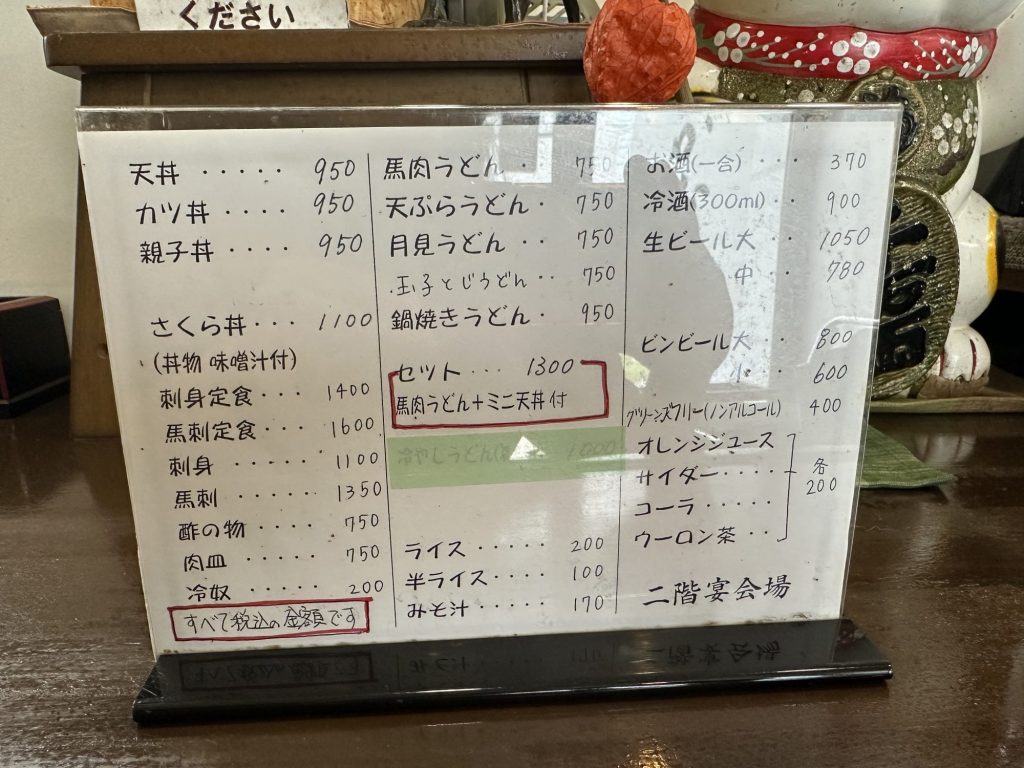 ください
天丼 ····· 950
カツ丼 ···· 950
親子丼 ···· 950
さくら丼··· 1100
(丼物 味噌汁付)
刺身定食··· 1400
馬刺定食··· 1600
刺身 ······ 1100
馬刺 ······ 1350
酢の物 ····· 750
肉皿 ······ 750
冷奴 ······ 200
すべて税込の金額です
馬肉うどん ·· 750
天ぷらうどん· 750
月見うどん ·· 750
玉子とじうどん ·· 750
鍋焼きうどん· 950
セット ··· 1300
馬肉うどん+ミニ天丼付
冷やしうどん( 1000
ライス ····· 200
半ライス ···· 100
みそ汁 ····· 170
お酒(一合) ··· 370
冷酒(300ml)·· 900
生ビール大 ·· 1050
中 ·· 780
ビンビール大 ·· 800
小 ·· 600
グリーンズフリー(ノンアルコール) 400
オレンジジュース
サイダー····
コーラ ·····
ウーロン茶 ···
各200
二階宴会場